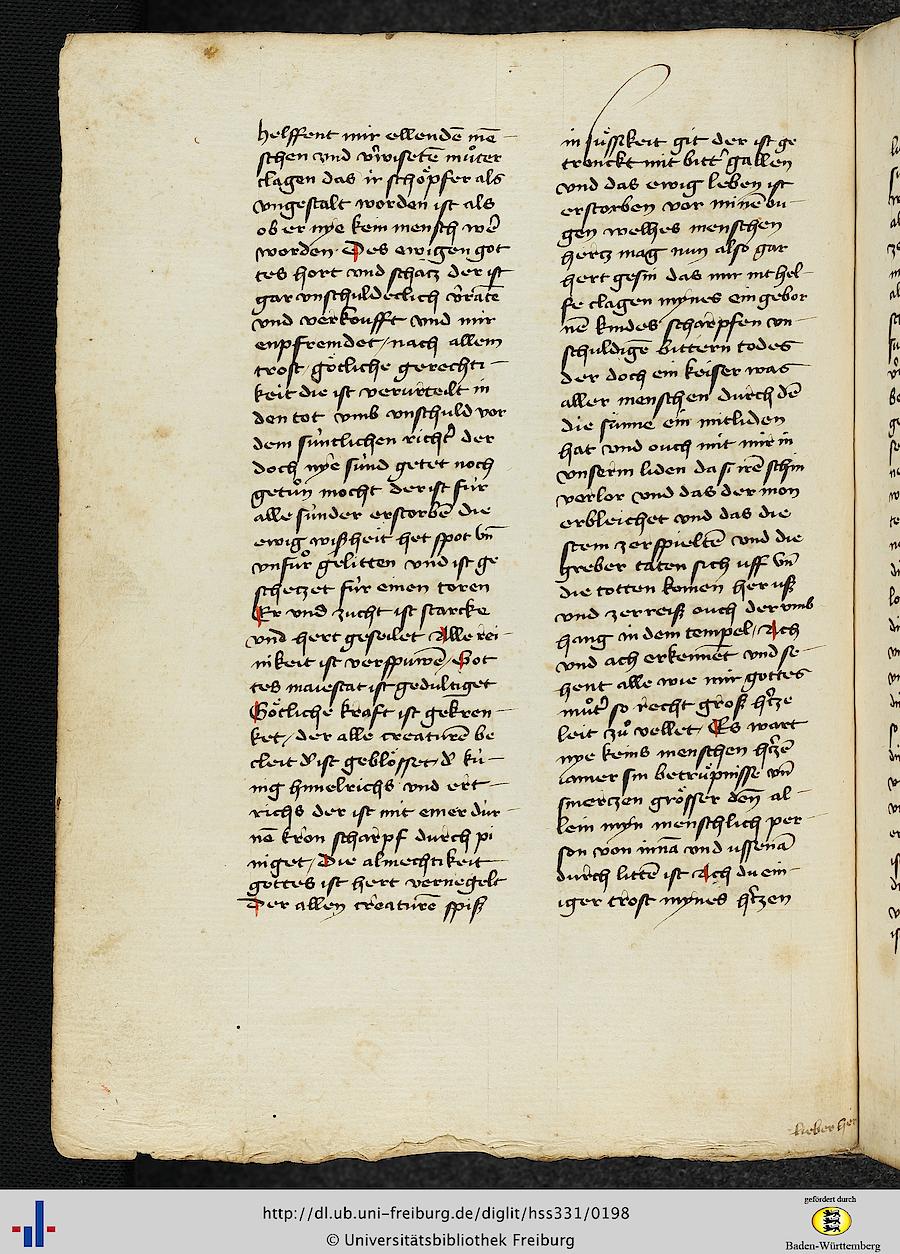 helffent mir ellendē mē-
schen vnd v̄wisetē můter
clagen das ir schöpfer als
vngestalt worden ist als
ob er nye kein mensch wē
worden · Des ewigen got
tes hort vnd schacz der ist
gar vnschuldeclich v̄ratē
vnd verkoufft vnd mir
enpfremdet / nach allem
trost / götliche gerechti-
keit die ist verurteilt in
den tot vmb vnschuld vor
dem süntlichen richt͛ der
doch nye sünd getet noch
getůn mocht der ist für
alle sünder erstorbē die
ewig wißheit het spot vn̄
vnfůr gelitten vnd ist ge
scheczet für einen toren
Er vnd zucht ist starcke
vnd hert geseilet Alle rei-
nikeit ist verspuwē / Got
tes maiestat ist gedultiget
Götliche kraft ist gekren-
ket / der alle creaturē be
cleit d͛ ist geblösset d͛ kü-
nig himelrichs vnd ert-
richs der ist mit einer dür-
nē kron scharpf durch pi
niget / Die almechtikeit
gottes ist hert vernegelt
Der allen creaturē spiß
in süssikeit git der ist ge
trenckt mit bitt͛ gallen
vnd das ewig leben ist
erstorben vor minē ou-
gen welhes menschen
hercz mag nun also gar
hert gesin das mir nit hel-
fe clagen mynes eingebor
nē kindes scharpfen vn-
schuldigē bittern todes
der doch ein keiser was
aller menschen durch dē
die sunne ein mitliden
hat vnd ouch mit mir in
vnserm liden das irē schin
verlor vnd das der mon
erbleichet vnd das die
stein zerspieltē vnd die
greber taten sich uff vn̄
die totten komen her uß
vnd zerreiß ouch der vmb
hang in dem tempel / Ach
vnd ach erkennēt vnd se-
hent alle wie mir gottes
můt͛ so recht groß h͛cze
leit zů vellet / Es wart
nye keins menschen h͛czē
iamer sin betrüpnisse vn̄
smerczen grösser den̄ al-
lein myn menschlich per-
son von innā vnd ussenā
durch littē ist Ach du ein-
iger trost mynes h͛czen
lieber her
http://dl.ub.uni-freiburg.de/diglit/hss331/0198
© Universitätsbibliothek Freiburg
gefördert durch
Baden-Württemberg